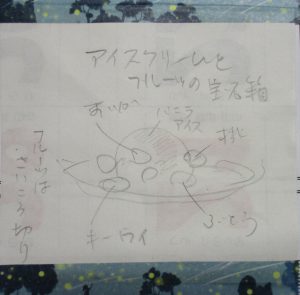 アイスクリームと
フルーツの宝石箱
バニラ
アイス
桃
キーウイ
ぶどう
フルーツは
・さいころ切り